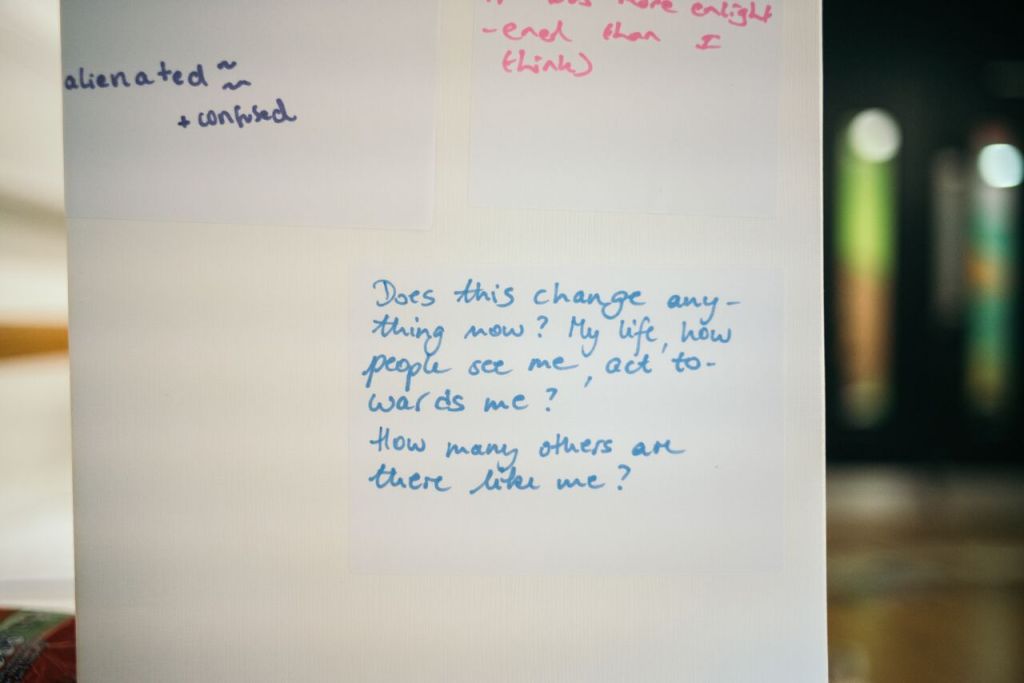 alienated ~
~
+ confused
was more enlight
-ened than I
think)
Does this change any-
thing now? My life, how
people see me, act to-
wards me?
How many others are
there like me?